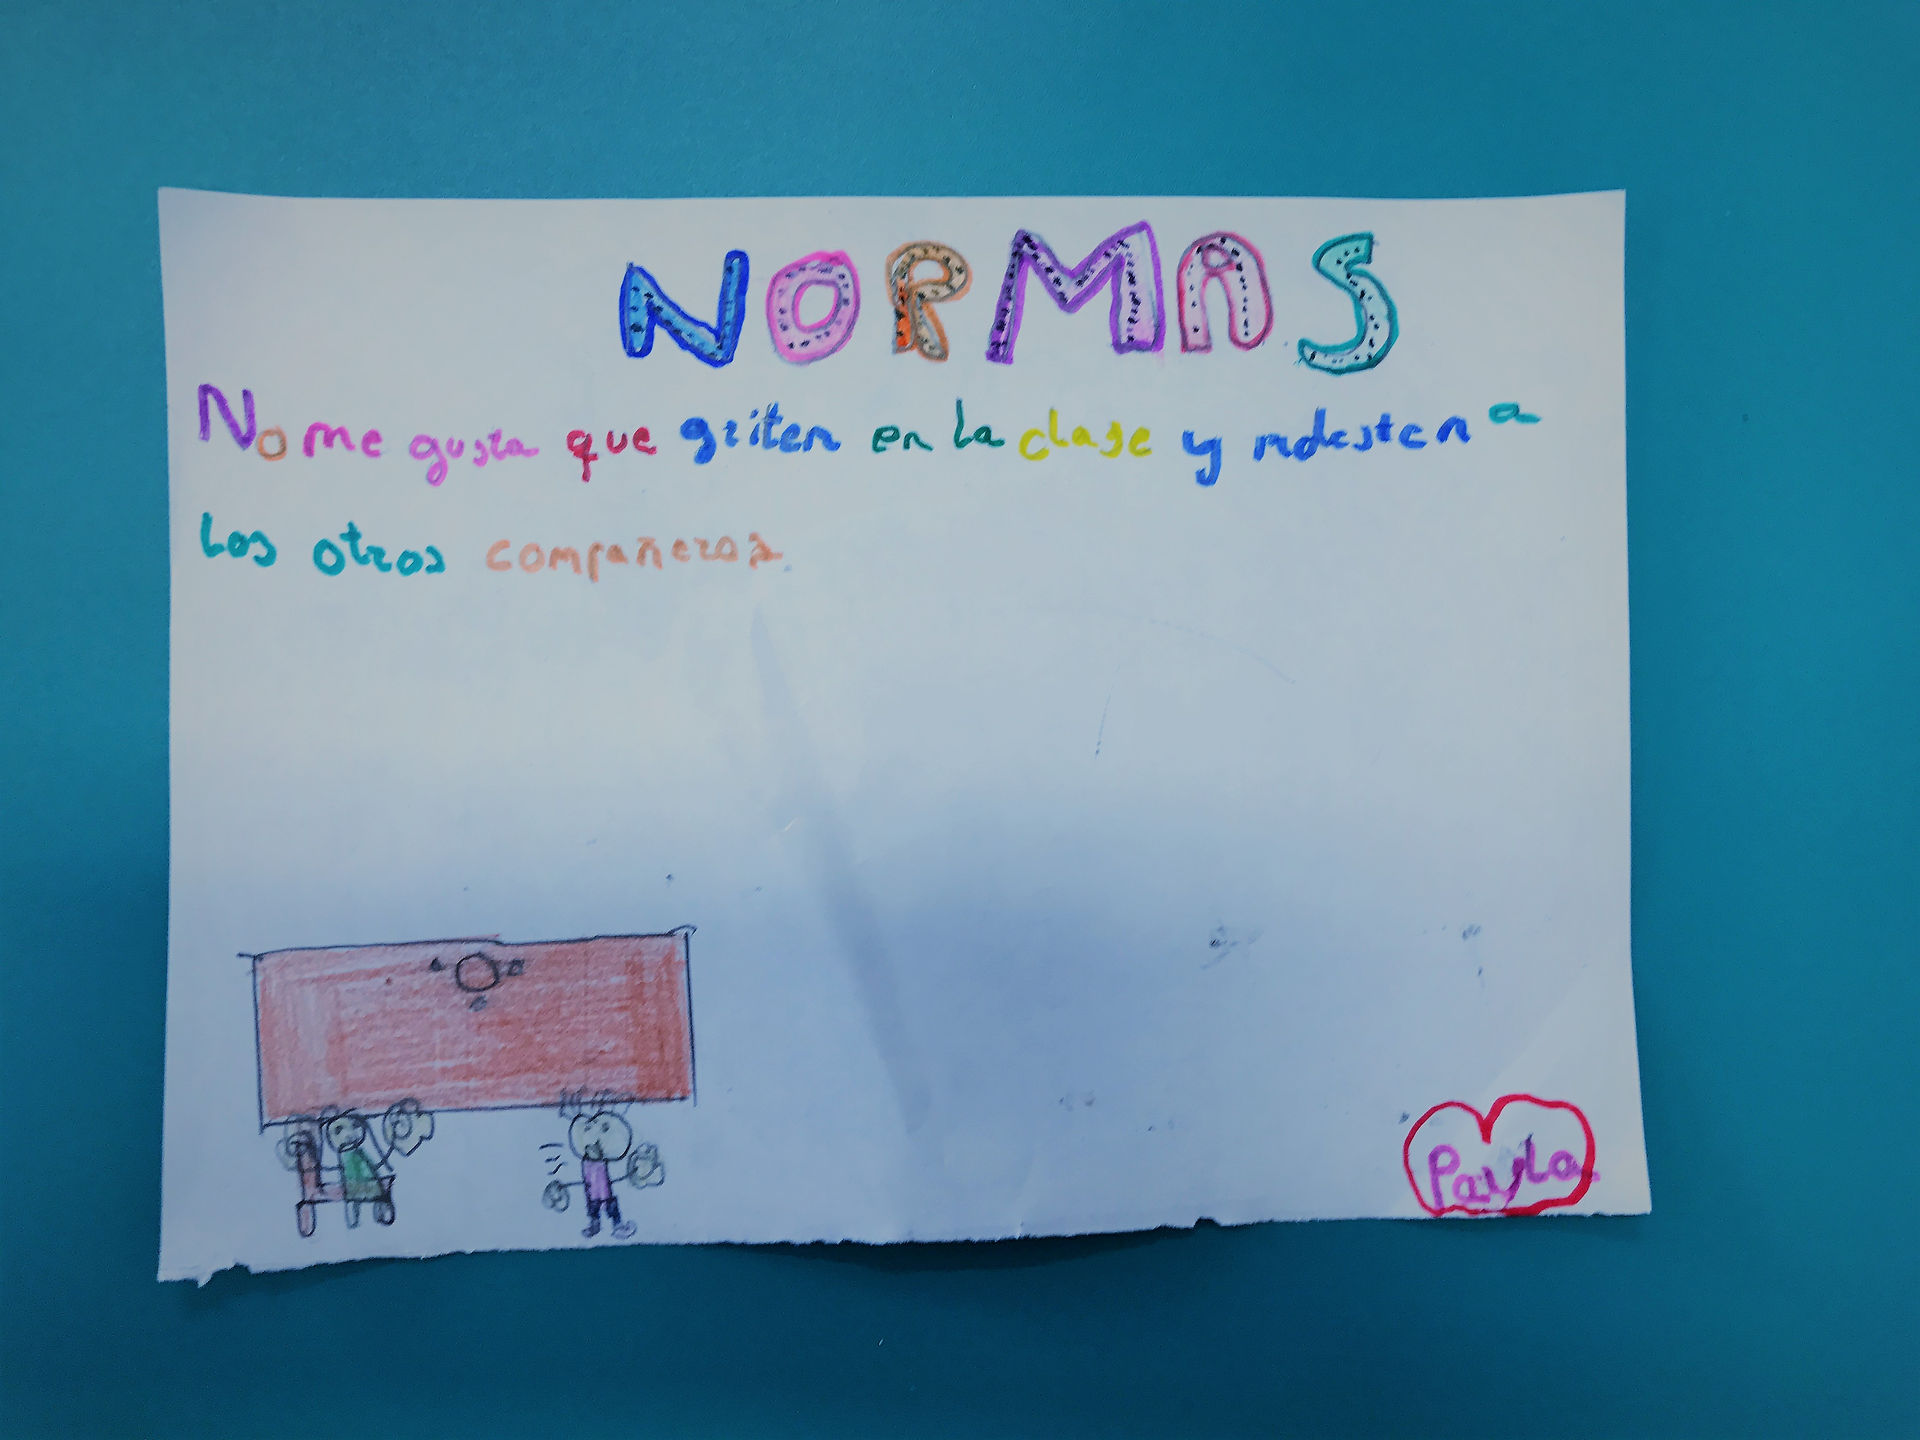 NORMAS
No me gusta que griten en la clase y molesten a
los otros compañeros.
Paula